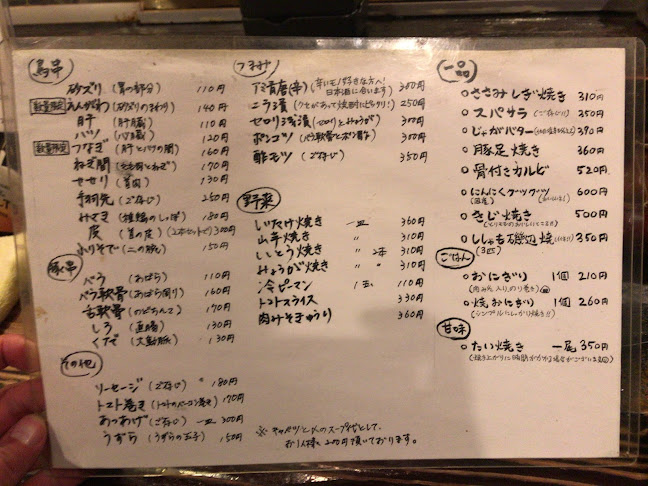 鳥串
砂ズリ (胃の部分) 110円
数量限定 えんがわ (砂ズリのまわり) 140円
肝 (肝臓) 110円
ハツ (心臓) 120円
数量限定 つなぎ (肝とハツの間) 160円
ねぎ間 (ももとねぎ) 170円
せせり (首肉) 130円
手羽先 (ご存じ) 250円
みさき (雌鶏のしっぽ) 180円
皮 (首の皮) (2本セットで) 300円
ふりそで (二の腕) 150円
豚串
バラ (あばら) 110円
バラ軟骨 (あばら周り) 160円
舌軟骨 (のどちんこ) 170円
しろ (直腸) 130円
くだ (大動脈) 130円
その他
ソーセージ (ご存じ) 180円
トマト巻き (トマトのベーコン巻き) 170円
あつあげ (ご存じ) 一皿 300円
うずら (うずらの玉子) 150円
つまみ
アミ青唐(辛) (辛いモノ好きな方へ! 日本酒に合います) 300円
ニラ漬 (クセがあって焼酎にピッタリ!) 250円
セロリ浅漬 (セロリとみょうが) 300円
ポンコツ (バラ軟骨とポン酢で) 350円
酢モツ (ご存じ) 350円
野菜
しいたけ焼き 一皿 360円
山芋焼き 〃 310円
ししとう焼き 〃 310円
みょうが焼き 〃 310円
冷ピーマン 110円
トマトスライス 330円
肉みそきゅうり 360円
※ キャベツとかんのスープ代として、
お1人様 200円頂いております。
一品
○ささみしぎ焼き 310円
○スパサラ (ご存じ!!) 350円
○じゃがバター 390円
○豚足焼き 360円
○骨付きカルビ 520円
○にんにくグツグツ 600円
(国産)
○きじ焼き 500円
○ししゃも磯辺焼 350円
(3匹)
ごはん
○おにぎり 1個 210円
(肉みそ入り、のり巻き)
○焼おにぎり 1個 260円
(シンプルにしっかり焼き!!)
甘味
○たい焼き 一尾 350円
(焼き上がりに時間がかかる場合がございます)